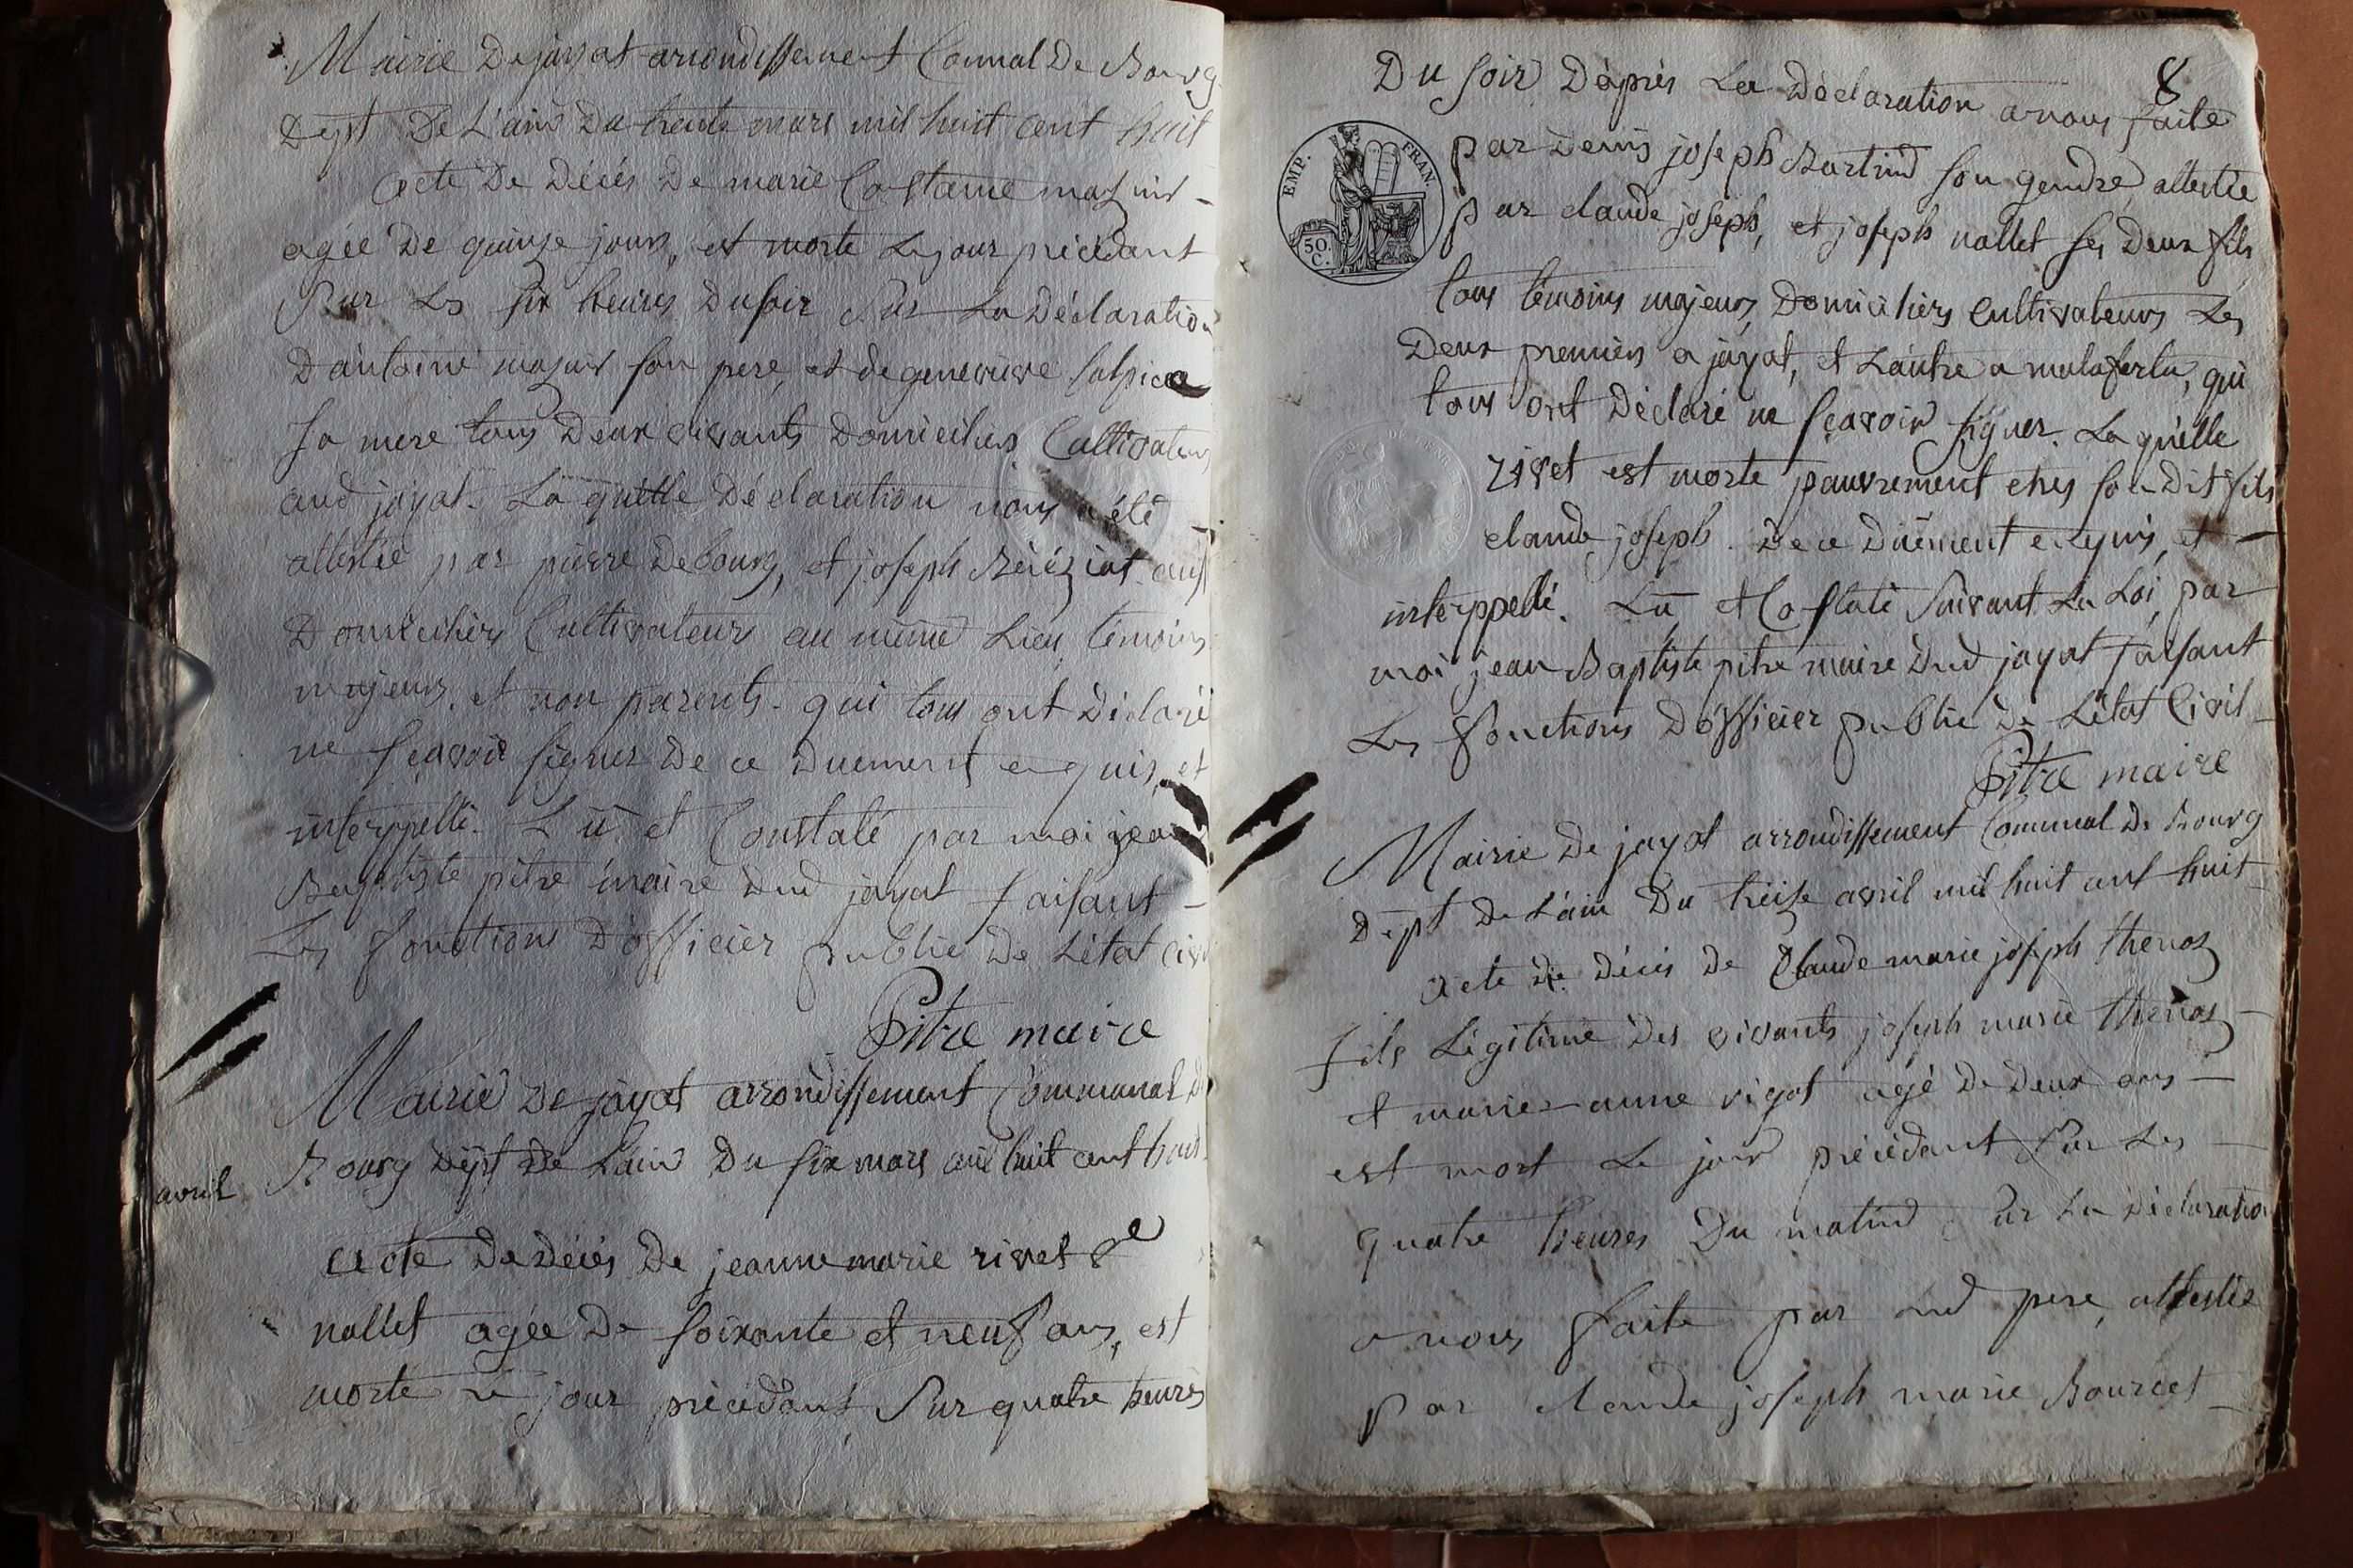 Mairie De jayat arrondissement Comual De Bourg
Dept De L'ain Du trente mars mil huit cent huit
Acte De Décés De marie Costance mazuir
agée De quinze jours, est morte Le jour précédant
Sur Les six heures Du soir Sur La Déclaration
D'antoine mazuir son pere, et de genevieve Sulpice
sa mere tous Deux vivants Domiciliers Cultivateurs
aud jayat. La quelle Déclaration nous a été
attestée par pierre Debourg, et joseph Béréziat aussi
Domiciliers Cultivateurs au même Lieu, témoins
majeurs, et non parents. qui tous ont Déclaré
ne sçavoir signer De ce Duement enquis, et
interppellé. Lu et Constaté par moi jean
Baptiste pitre maire Dud jayat faisant
Les fonctions D'officier public De L'état civil
Pitre maire
Mairie De jayat arrondissement Communal De
avril
Bourg Dept De L'ain Du six mars mil huit cent huit
Acte De Décés De jeanne marie rivet Ve
nallet agée De soixante et neuf ans, est
morte le jour précédant, Sur quatre heures
8
Du soir D'après La Déclaration a nous faite
par Denis joseph Bartind son gendre, attestée
par claude joseph, et joseph nallet ses Deux fils
tous témoins majeurs, Domiciliers Cultivateurs Les
Deux premiers a jayat, et L'autre a malaferta, qui
tous ont Déclaré ne sçavoir signer. La quelle
rivet est morte pauvrement ches son Dit fils
claude joseph. De ce Duëment enquis, et
interppellé. Lu et Costaté Suivant La Loi, par
moi jean Baptiste pitre maire Dud jayat faisant
Les fonctions D'officier public De L'état Civil
Pitre maire
EMP. FRAN.
50. C.
Mairie De jayat arrondissement Communal De Bourg
Dept De L'ain Du treize avril mil huit cent huit
Acte De Décés De Claude marie joseph thenoz
fils Légitime Des vivants joseph marie thenoz
et marie-anne rigot agé De Deux ans
est mort Le jour précédant Sur Les
quatre heures Du matin Sur La Déclaration
a nous faite par sud pere, attestée
par claude joseph marie Bourcet